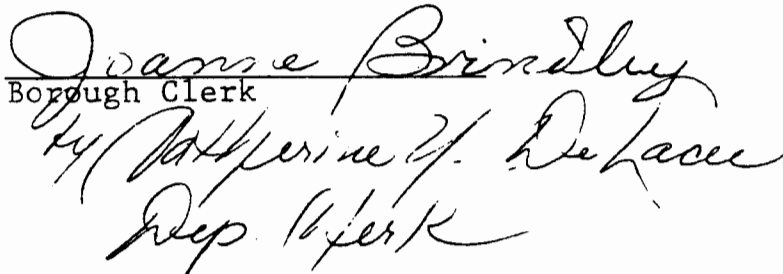 Joanne Brindley
Borough Clerk
by Katherine Y. DeLacee
Dep. Clerk